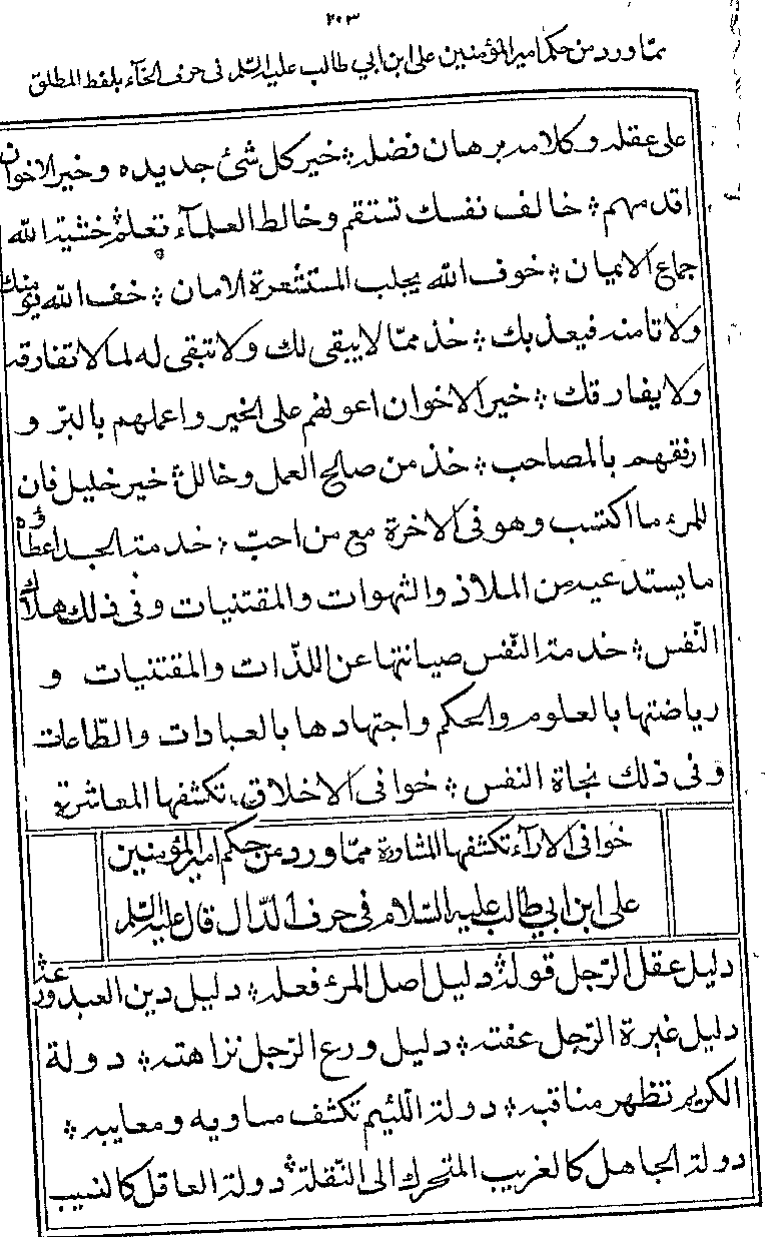 ٢٠٣
ممّا ورد من حكم امير المؤمنين على ابن ابي طالب عليه السّلم فى حرف الخآء بلفظ المطلق
على عقله وكلامه برهان فضله ؛ خير كل شئ جديده وخير الاخوان
اقدمهم ؛ خالف نفسك تستقم وخالط العلمآء تعلم ؛ خشية الله
جماع الايمان ؛ خوف الله يجلب المستشعرة الامان ؛ خف الله يؤمنك
ولا تامنه فيعذبك ؛ خذ ممّا لا يبقى لك ولا تبقى له لما لا تفارقه
ولا يفارقك ؛ خير الاخوان اعونهم على الخير واعملهم بالبرّ و
ارفقهم بالمصاحب ؛ خذ من صالح العمل وخالل خير خليل فان
للمرء ما اكتسب وهو فى الاخرة مع من احبّ ؛ خدمة الجسد اعطاؤه
ما يستدعيه من الملاذ والشهوات والمقتنيات وفى ذلك هلاك
النّفس ؛ خدمة النّفس صيانتها عن اللذّات والمقتنيات و
رياضتها بالعلوم والحكم واجتهادها بالعبادات والطّاعات
وفى ذلك نجاة النفس ؛ خوافى الاخلاق تكشفها المعاشرة
خوافى الارآء تكشفها المشاورة ممّا ورد من حكم امير المؤمنين
على ابن ابي طالب عليه السّلام فى حرف الدّال قال عليه السّلم
دليل عقل الرّجل قوله ؛ دليل اصل المرء فعله ؛ دليل دين العبد ورعه
دليل غيرة الرّجل عفته ؛ دليل ورع الرّجل نزاهته ؛ دولة
الكريم تظهر مناقبه ؛ دولة اللّئيم تكشف مساويه ومعايبه ؛
دولة الجاهل كالغريب المتحرك الى النّقلة ؛ دولة العاقل كالنسيب